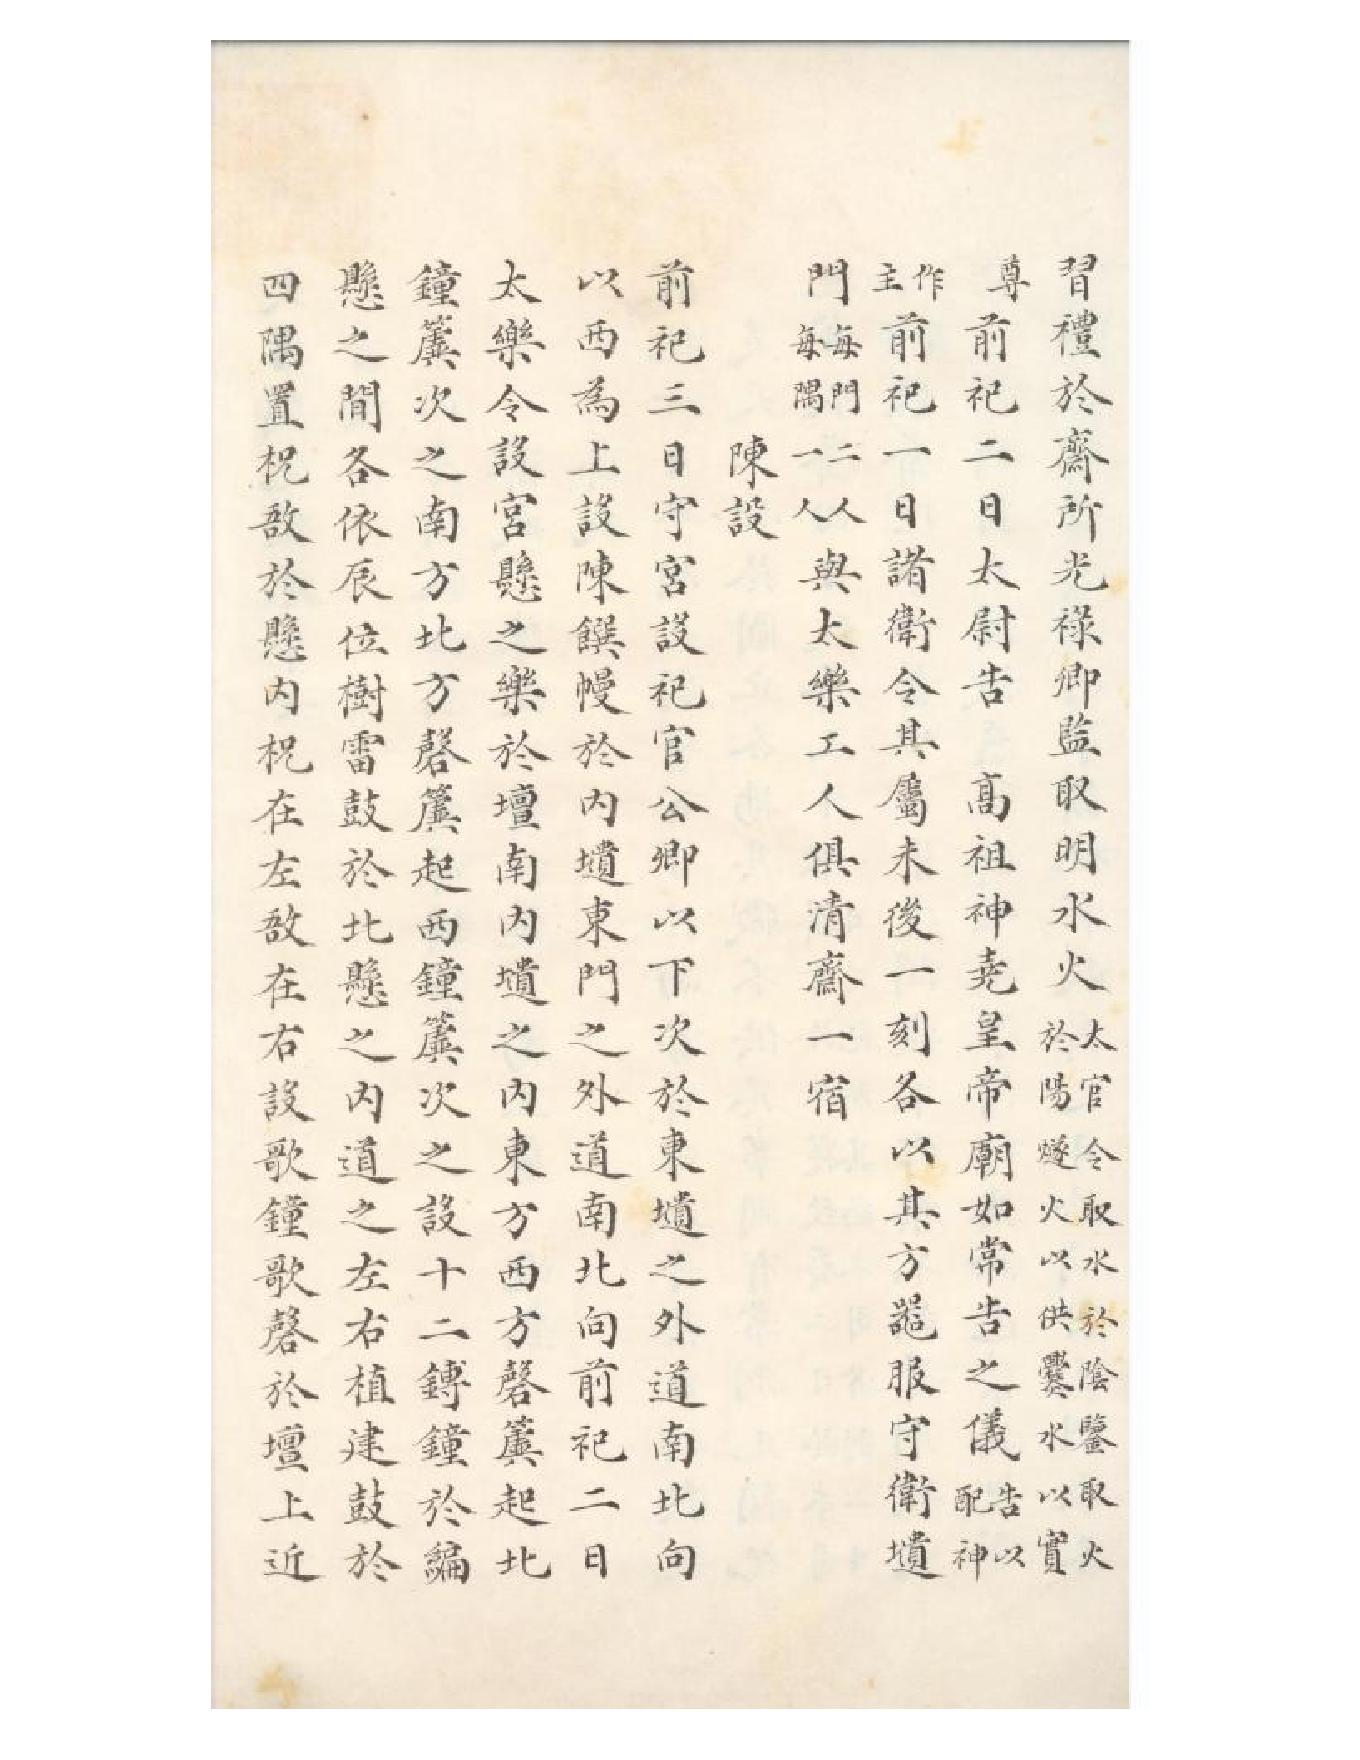 習禮於齋所光祿卿監取明水火太官令取水於陰鑒取火於陽燧火以供爨水以實
尊前祀二日太尉告高祖神堯皇帝廟如常告之儀告以配神
作主前祀一日諸衛令其屬未後一刻各以其方器服守衛壝
門每門二人每隅一人與太樂工人俱清齋一宿
陳設
前祀三日守宮設祀官公卿以下次於東壝之外道南北向
以西為上設陳饌幔於內壝東門之外道南北向前祀二日
太樂令設宮懸之樂於壇南內壝之內東方西方磬簴起北
鐘簴次之南方北方磬簴起西鐘簴次之設十二鎛鐘於編
懸之間各依辰位樹雷鼓於北懸之內道之左右植建鼓於
四隅置柷敔於懸內柷在左敔在右設歌鐘歌磬於壇上近